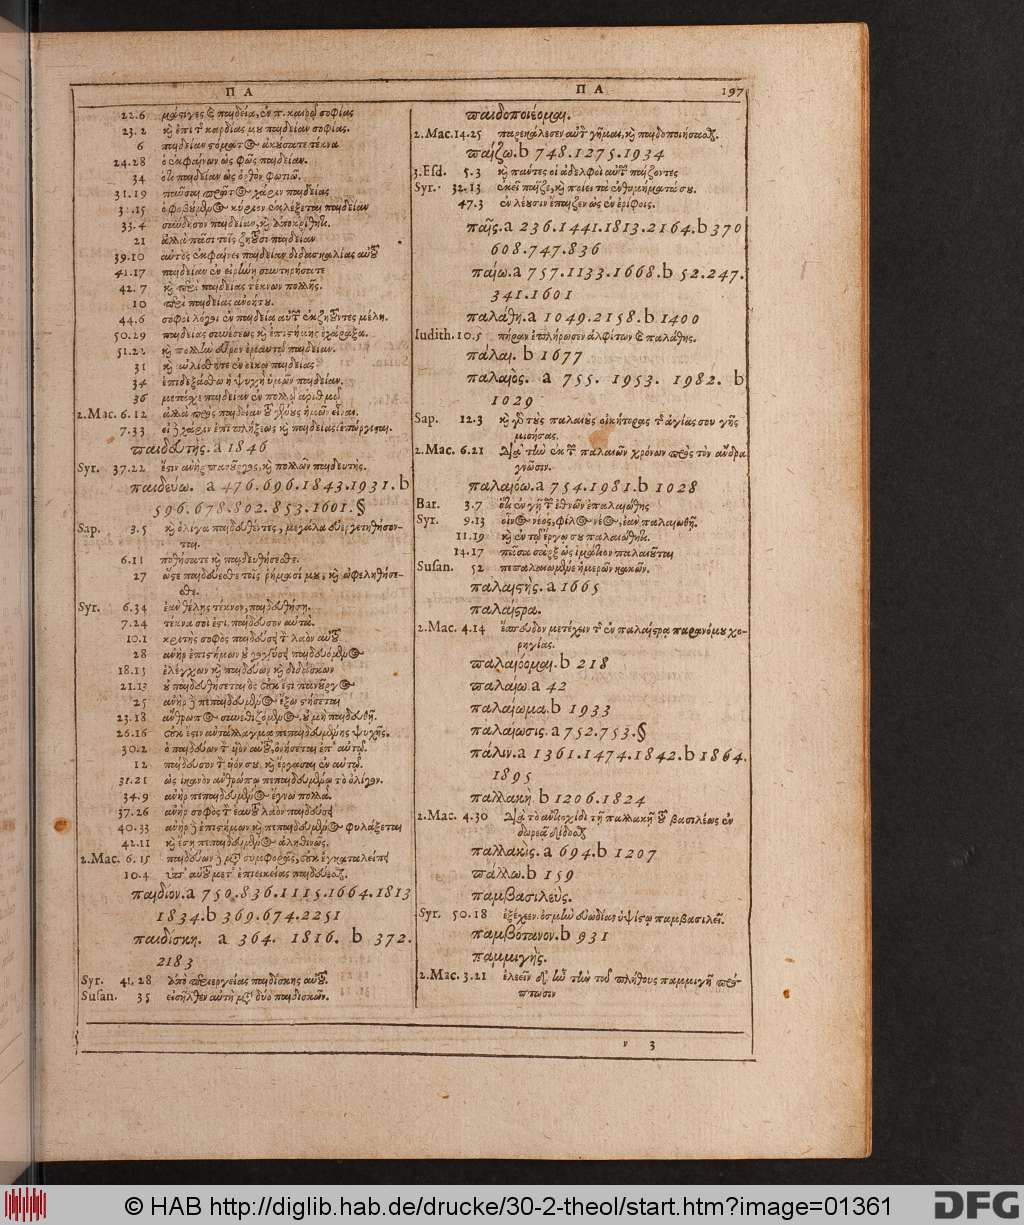 Π Α
Π Α 197
22.6 μάστιγες καὶ παιδεία, ἐν π. καιρῷ σοφίας
23.2 καὶ ἐπὶ τ καρδίας μου παιδείαν σοφίας.
6 παιδείαν στόματος ἀκούσατε τέκνα
24.28 ὁ ἐκφαίνων ὡς φῶς παιδείαν.
34 ὅτι παιδείαν ὡς ὄρθρον φωτιῶ.
31.19 παῦσαι πρῶτος χάριν παιδείας
32.15 ὁ φοβούμενος κύριον ἐκλέξεται παιδείαν
33.4 σύνδησον παιδείαν, καὶ ἀποκρίθητι.
21 ἀλλὰ πᾶσι τοῖς ζητοῦσι παιδείαν
39.10 αὐτὸς ἐκφαίνει παιδείαν διδασκαλίας αὐτοῦ
41.17 παιδείαν ἐν εἰρήνῃ συντηρήσατε
42.7 καὶ περὶ παιδείας τέκνων πολλῆς.
10 περὶ παιδείας ἀνοήτου.
44.6 σοφοὶ λόγοι ἐν παιδεία αὐτῶν ἐκζητοῦντες μέλη.
50.29 παιδείας συνέσεως καὶ ἐπιστήμης ἐχάραξα.
51.22 καὶ πολλὴν εὗρον ἐμαυτῷ παιδείαν.
31 καὶ αὐλίσθητε ἐν οἴκῳ παιδείας
34 ἐπιδεξάσθω ἡ ψυχὴ ὑμῶν παιδείαν.
36 μετάχε παιδείαν ἐν πολλῷ ἀριθμῷ
2.Mac. 6.12 ἀλλὰ πρὸς παιδείαν τοῦ γένους ἡμῶν εἶναι.
7.33 εἰ ἢ χάριν ἐπιπλήξεως καὶ παιδείας ἐπώργισται.
παιδευτής. a 1846
Syr. 37.22 ἔστιν ἀνὴρ πανοῦργος, καὶ πολλῶν παιδευτής.
παιδεύω. a 476.696.1843.1931. b
596.678.802.853.1601. §
Sap. 3.5 καὶ ὀλίγα παιδευθέντες, μεγάλα εὐεργετηθήσον-
ται.
6.11 ποθήσατε καὶ παιδευθήσεσθε.
27 ὥστε παιδεύεσθε τοῖς ῥήμασί μου, καὶ ὠφεληθήσε-
σθε.
Syr. 6.34 ἐὰν θέλῃς τέκνον, παιδευθήσῃ.
7.24 τέκνα σοι ἐστι, παίδευσον αὐτά.
10.1 κριτὴς σοφὸς παιδεύσει τ λαὸν αὐτοῦ
28 ἀνὴρ ἐπιστήμων οὐ γογγύσει παιδευόμενος
18.13 ἐλέγχων καὶ παιδεύων καὶ διδάσκων
21.13 οὐ παιδευθήσεται ὃς οὐκ ἔστι πανοῦργος
25 ἀνὴρ ἢ πεπαιδευμένος ἔξω στήσεται
23.18 ἄνθρωπος συνεθιζόμενος, οὐ μὴ παιδευθῇ.
26.16 οὐκ ἔστιν ἀντάλλαγμα πεπαιδευμένης ψυχῆς.
30.2 ὁ παιδεύων τ υἱὸν αὐτοῦ, ὀνήσεται ἐπ' αὐτῷ.
12 παίδευσον τ υἱόν σου, καὶ ἔργασαι ἐν αὐτῷ.
31.21 ὡς ἱκανὸν ἀνθρώπῳ πεπαιδευμένῳ τὸ ὀλίγον.
34.9 ἀνὴρ πεπαιδευμένος ἔγνω πολλά.
37.26 ἀνὴρ σοφὸς τ ἑαυτοῦ λαὸν παιδεύσει
40.33 ἀνὴρ ἢ ἐπιστήμων καὶ πεπαιδευμένος φυλάξεται
42.11 καὶ ἔσῃ πεπαιδευμένος ἀληθινῶς.
2.Mac. 6.15 παιδεύων ἢ μετὰ συμφορᾶς, οὐκ ἐγκαταλείπει
10.4 ὑπ' αὐτοῦ μετ' ἐπιεικείας παιδεύεσθαι.
παιδίον. a 750.836.1115.1664.1813
1834. b 369.674.2251
παιδίσκη. a 364. 1816. b 372.
2183
Syr. 41.28 ἀπὸ περιεργείας παιδίσκης αὐτοῦ.
Susan. 35 εἰσῆλθεν αὐτὴ μετὰ δύο παιδισκῶν.
παιδοποιέομαι.
2.Mac. 14.25 παρεκάλεσεν αὐτ γῆμαι, καὶ παιδοποιήσασθαι.
παίζω. b 748.1275.1934
3.Esd. 5.3 καὶ πάντες οἱ ἀδελφοὶ αὐτῶν παίζοντες
Syr. 32.13 ἐκεῖ παῖζε, καὶ ποίει τὰ ἐνθυμήματά σου.
47.3 ἐν λέουσιν ἔπαιξεν ὡς ἐν ἐρίφοις.
παῖς. a 236.1441.1813.2164. b 370
608.747.836
παίω. a 757.1133.1668. b 52.247.
341.1601
παλάθη. a 1049.2158. b 1400
Iudith. 10.5 πήραν ἐπλήρωσεν ἀλφίτων καὶ παλάθης.
πάλαι. b 1677
παλαιὸς. a 755. 1953. 1982. b
1029
Sap. 12.3 καὶ γὰρ τοὺς παλαιοὺς οἰκήτορας τ ἁγίας σου γῆς
μισήσας.
2.Mac. 6.21 διὰ τὴν ἐκ τῶν παλαιῶν χρόνων πρὸς τὸν ἄνδρα
γνῶσιν.
παλαιόω. a 754.1981. b 1028
Bar. 3.7 ὅτι ἐν γῇ τ ἐθνῶν ἐπαλαιώθης
Syr. 9.13 οἶνος νέος, φίλος νέος, ἐὰν παλαιωθῇ.
11.19 καὶ ἐν τῷ ἔργῳ σου παλαιώθητι.
14.17 πᾶσα σὰρξ ὡς ἱμάτιον παλαιοῦται
Susan. 52 πεπαλαιωμένε ἡμερῶν κακῶν.
παλαιστής. a 1665
παλαίστρα.
2.Mac. 4.14 ἔσπευδον μετέχειν τ ἐν παλαίστρᾳ παρανόμου χο-
ρηγίας.
παλαιόομαι. b 218
παλαίω. a 42
παλαίωμα. b 1933
παλαίωσις. a 752.753. §
πάλιν. a 1361.1474.1842. b 1864.
1895
παλλακή. b 1206.1824
2.Mac. 4.30 διὰ τὸ ἀντιοχίδι τῇ παλλακῇ τοῦ βασιλέως ἐν
δωρεᾷ δίδοσθαι
παλλακὶς. a 694. b 1207
πάλλω. b 159
παμβασιλεὺς.
Syr. 50.18 ἐξέχεεν ὀσμὴν εὐωδίας ὑψίστῳ παμβασιλεῖ.
παμβότανον. b 931
παμμιγὴς.
2.Mac. 3.21 ἐλεεῖν δ' ἦν τὴν τοῦ πλήθους παμμιγῆ πρό-
πτωσιν
ν 3
© HAB http://diglib.hab.de/drucke/30-2-theol/start.htm?image=01361
DFG